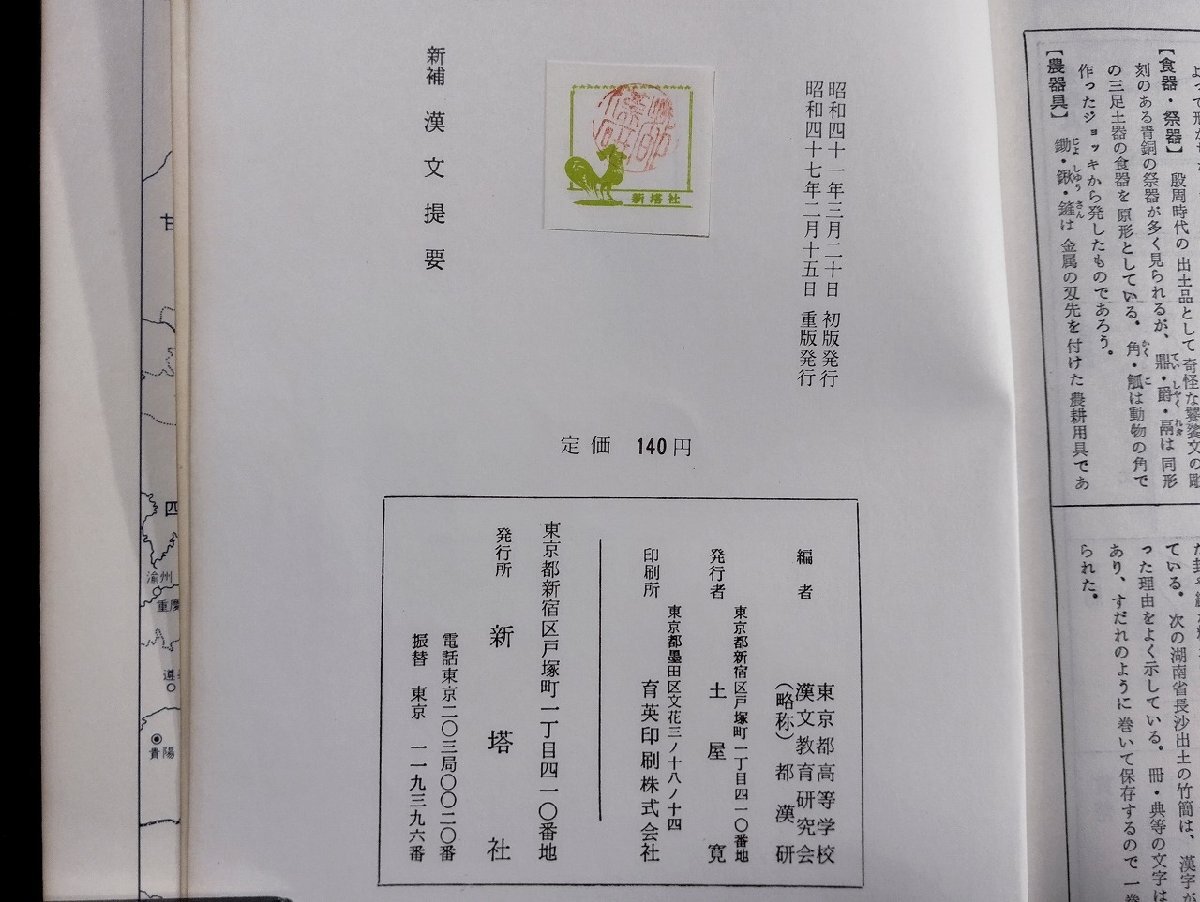 よって形
【食器・祭器】 殷周時代の出土品として奇怪な饕餮文の彫
刻のある青銅の祭器が多く見られるが、鼎・爵・鬲は同形
の三足土器の食器を原形としている。角・觚は動物の角で
作ったジョッキから発したものであろう。
【農器具】 鋤・鍬・鏟は金属の刃先を付けた農耕用具であ
ている。次の湖南省長沙出土の竹簡は、漢字が
った理由をよく示している。冊・典等の文字は
あり、すだれのように巻いて保存するので一巻
られた。
昭和四十一年三月二十日 初版発行
昭和四十七年二月十五日 重版発行
新塔社
新補 漢文提要
定価 140円
編者 東京都高等学校
漢文教育研究会
(略称) 都漢研
東京都新宿区戸塚町一丁目四一〇番地
発行者 土屋寛
東京都墨田区文花三ノ十八ノ十四
印刷所 育英印刷株式会社
東京都新宿区戸塚町一丁目四一〇番地
発行所 新塔社
電話東京二〇三局〇〇二〇番
振替 東京 一一九三九六番
甘
四
渝州
重慶
遵
貴陽